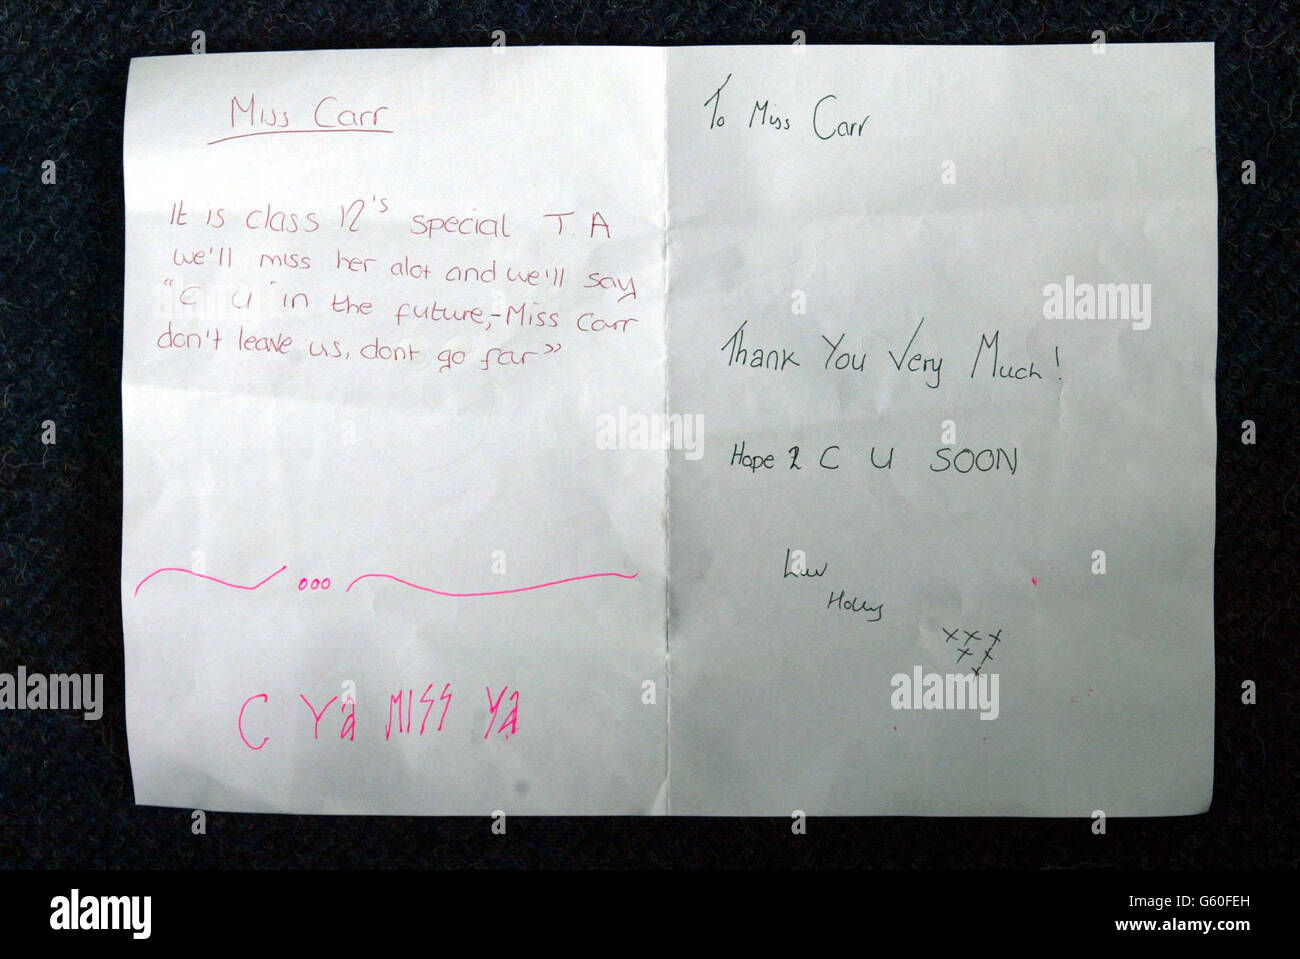 Miss Carr
It is class 12's special T.A
we'll miss her alot and we'll say
"C U" in the future,-Miss Carr
don't leave us, dont go far"
ooo
C Ya MISS Ya
To Miss Carr
Thank You Very Much!
Hope 2 C U SOON
Luv
Holly
xxx
xx
x
alamy
a
alamy
Image ID: G60FEH
www.alamy.com